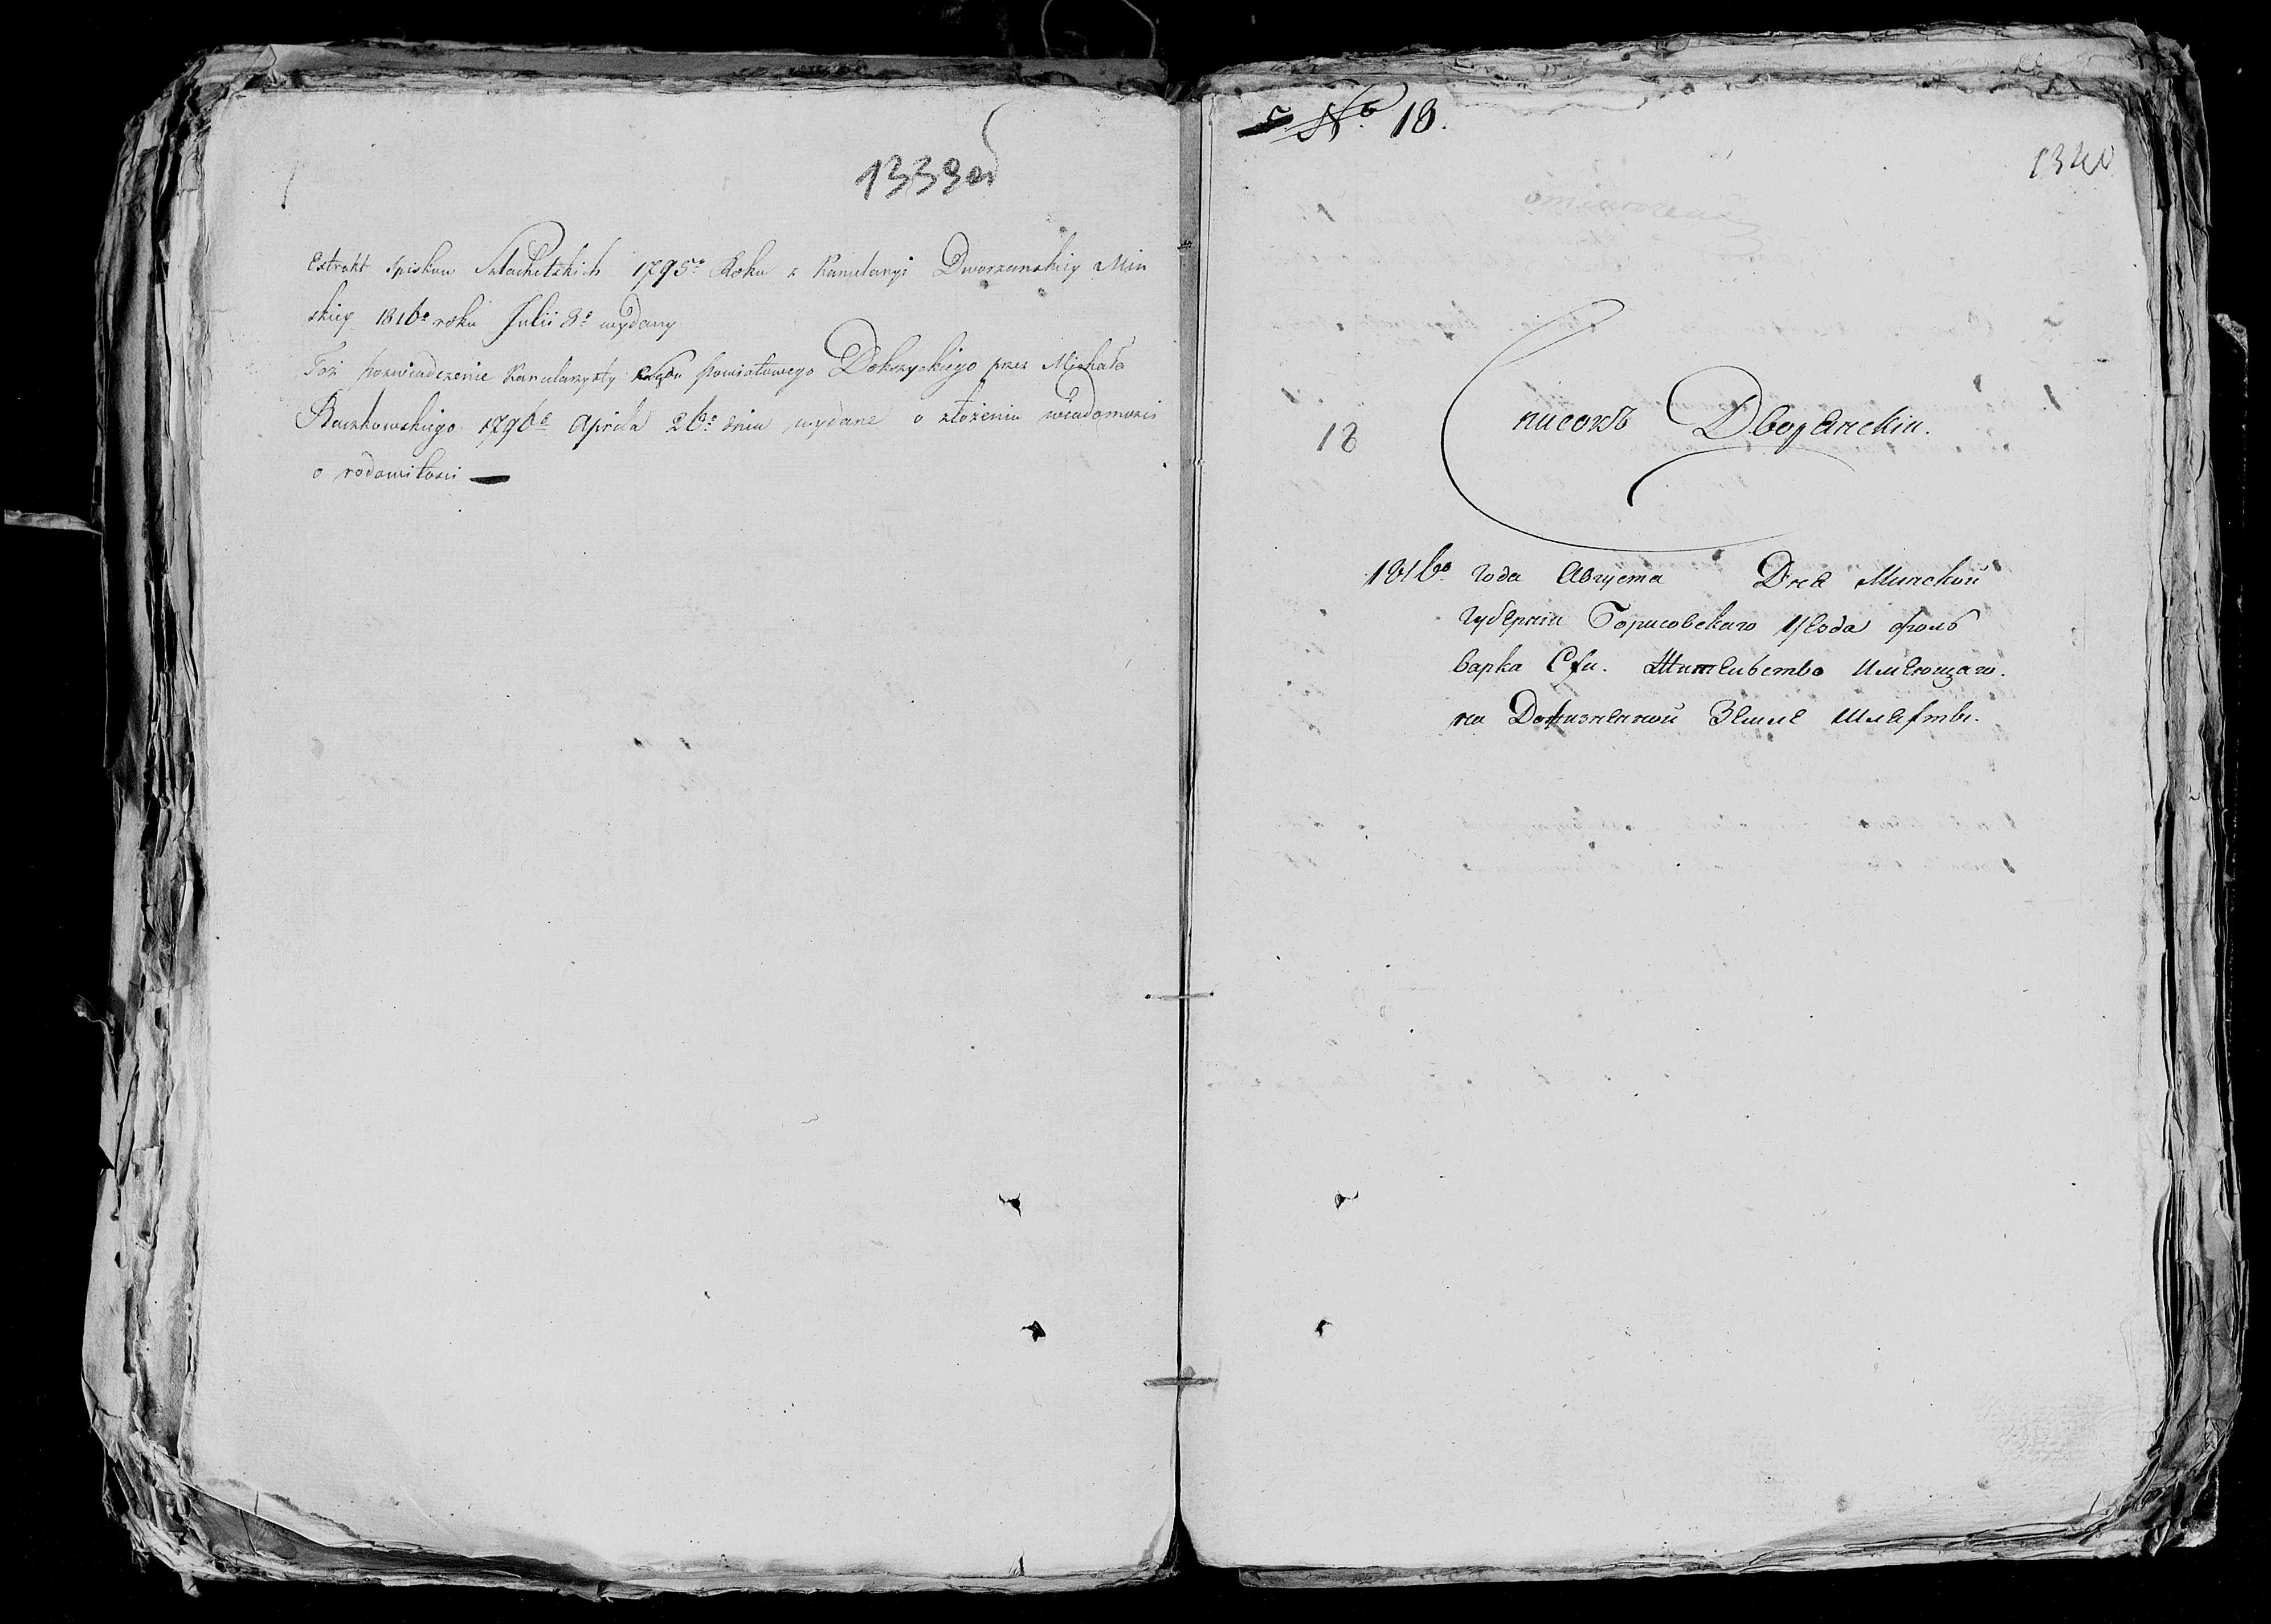 1339об
Extrakt Spiskow Szlachetskich 1795o Roku z Kancelaryi Dworzanskiey Min
skiey 1816o roku Julii 8o wydany
Toż poswiadczenie Kancelarzysty Sądu Powiatowego Dokszyckiego przez Michała
Raczkowskiego 1796o Aprila 26o dnia wydane o złożeniu wiadomosci
o rodowitosci
No 18.
1340
18
Списокъ Дворянскіи.
1816го года Августа Дня Минской
Губерніи Борисовскаго Уезда фоль
варка Жительство Имеющаго.
на Земле Шляхты.